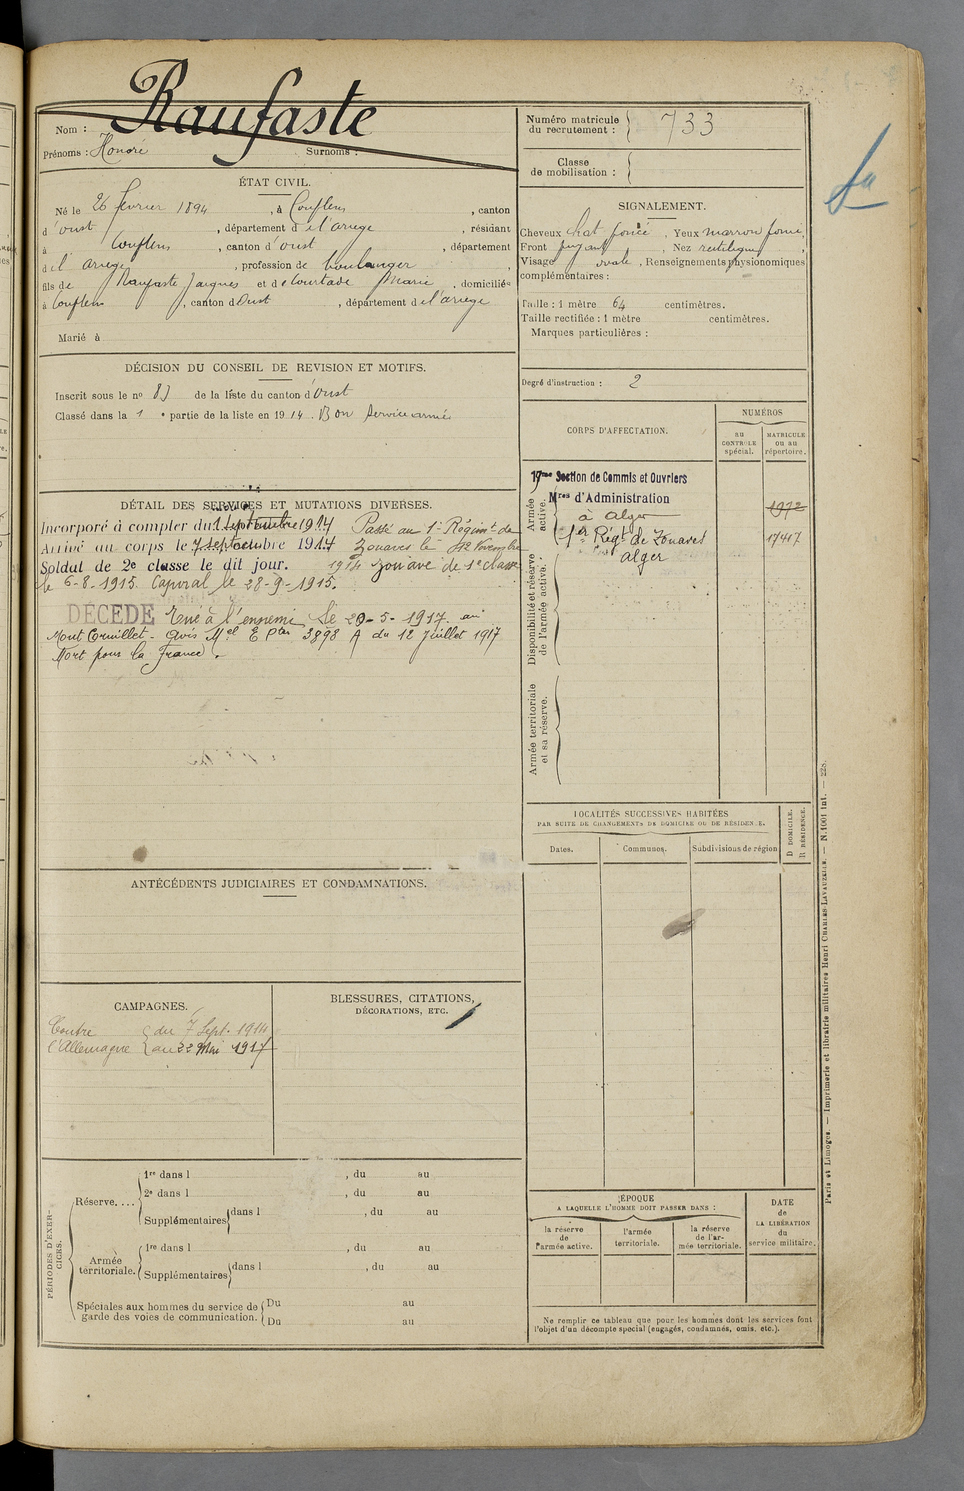 Raufaste
Nom :
Prénoms : Honoré Surnoms :
Numéro matricule du recrutement : 733
Classe de mobilisation :
ÉTAT CIVIL.
Né le 26 février 1894, à Couflens, canton
d'Oust, département de l'ariège, résidant
à Couflens, canton d'Oust, département
de l'ariège, profession de boulanger
fils de Raufaste Jacques et de Courtade Marie, domiciliés
à Couflens, canton d'Oust, département de l'ariège
Marié à
SIGNALEMENT.
Cheveux chat foncé, Yeux marron foncé,
Front fuyant, Nez rectiligne,
Visage ovale, Renseignements physionomiques
complémentaires :
Taille : 1 mètre 64 centimètres.
Taille rectifiée : 1 mètre centimètres.
Marques particulières :
Degré d'instruction : 2
DÉCISION DU CONSEIL DE REVISION ET MOTIFS.
Inscrit sous le no 83 de la liste du canton d'Oust
Classé dans la 1e partie de la liste en 1914. Bon Service armé
CORPS D'AFFECTATION.
NUMÉROS
AU CONTROLE spécial.
MATRICULE OU AU répertoire.
Armée active.
17me Section de Commis et Ouvriers
Mres d'Administration
à Alger
1972
1er Régt de Zouaves
alger
17417
Disponibilité et réserve de l'armée active.
Armée territoriale et sa réserve.
DÉTAIL DES SERVICES ET MUTATIONS DIVERSES.
Incorporé à compter du 1 Septembre 1914 Passé au 1er Régiment de
Arrivé au corps le 7 septembre 1914 Zouaves le 12 Novembre
Soldat de 2e classe le dit jour. 1914 Zouave de 1e classe
le 6-8-1915. Caporal le 28-9-1915.
DÉCÉDÉ Tué à l'ennemi le 20-5-1917 au
Mont Cornillet - avis Mel E Pter 3898 A du 12 Juillet 1917
Mort pour la France.
LOCALITÉS SUCCESSIVES HABITÉES
PAR SUITE DE CHANGEMENTS DE DOMICILE OU DE RÉSIDENCE.
Dates.
Communes.
Subdivisions de région
D DOMICILE.
R RÉSIDENCE.
ANTÉCÉDENTS JUDICIAIRES ET CONDAMNATIONS.
CAMPAGNES.
Contre du 7 Sept. 1914
l'Allemagne au 22 Mai 1917
BLESSURES, CITATIONS,
DÉCORATIONS, ETC.
PÉRIODES D'EXERCICES.
Réserve....
1re dans l , du au
2e dans l , du au
Supplémentaires dans l , du au
Armée territoriale.
1re dans l , du au
Supplémentaires dans l , du au
Spéciales aux hommes du service de garde des voies de communication.
Du au
Du au
ÉPOQUE
A LAQUELLE L'HOMME DOIT PASSER DANS :
la réserve de l'armée active.
l'armée territoriale.
la réserve de l'armée territoriale.
DATE de LA LIBÉRATION du service militaire.
Ne remplir ce tableau que pour les hommes dont les services font
l'objet d'un décompte spécial (engagés, condamnés, omis, etc.).
Paris et Limoges. — Imprimerie et librairie militaires Henri CHARLES-LAVAUZELLE. — N. 1001 int. — 228.